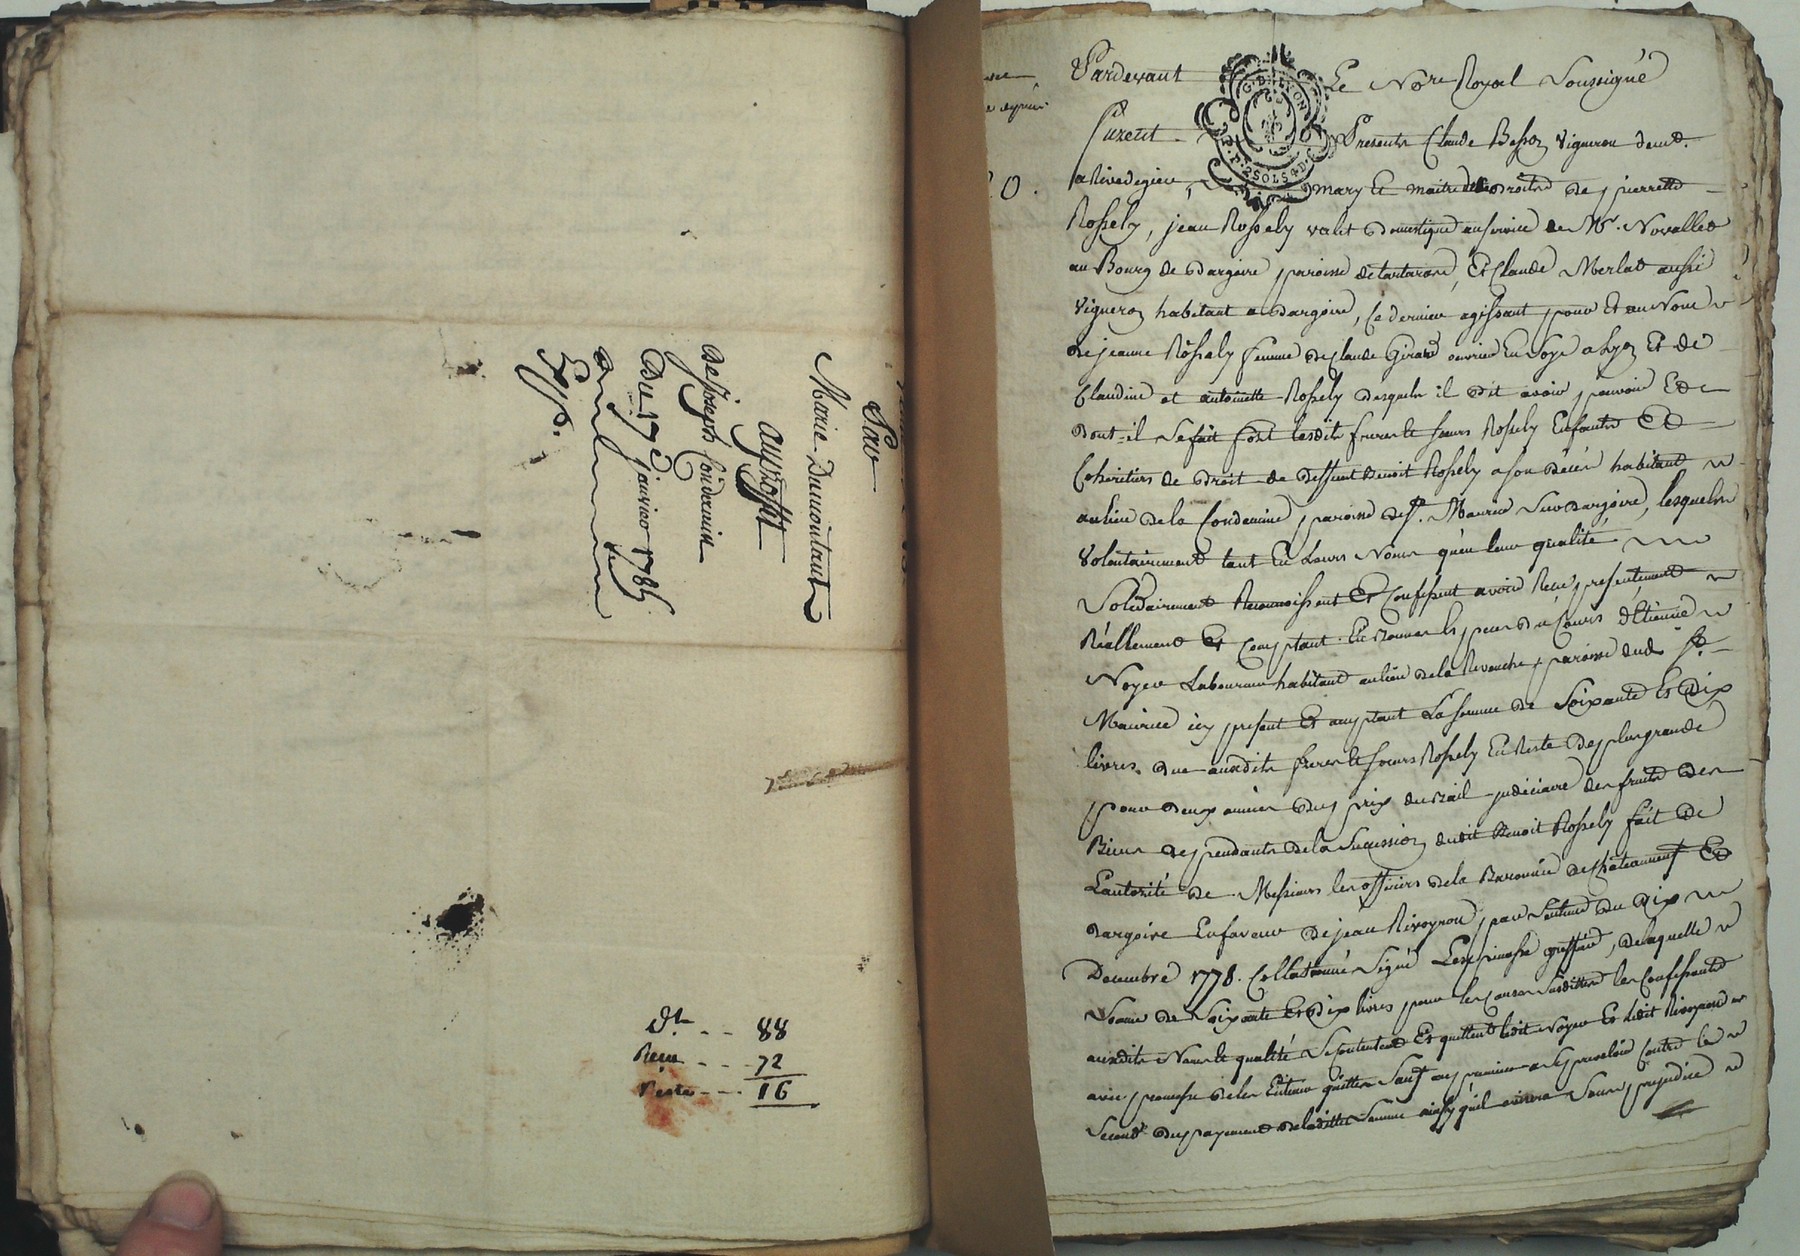 Par
Marie Dumontant
au proffit
de Joseph Condamin
Du 17e janvier 1785
Exp.
dt -- 88
Recu --- 72
Reste --- 16
Pardevant Le Nore Royal Soussigné
furent Presents Claude Besson vigneron demt.
a Rivedegier, mary et maitre des droits de pierrette
Rossely, jean Rossely valet domestique au service de Mr. Novallet
au Bourg de dargoire paroisse de tartaras, Et Claude Merlat aussi
vigneron habitant a dargoire, Ce dernier agissant pour Et au Nom
de jeanne Rossely femme de Claude Girard ouvrier En Soye a Lyon Et de
Claudine et antoinette Rossely desquels il dit avoir pouvoir Et
dont il Se fait fort lesdits freres et soeurs Rossely Enfants Et
Coheritiers de droit de deffunt Benoit Rossely a son décès habitant
au lieu de la Condamine paroisse de St. Maurice Sur dargoire, lesquels
Volontairement tant En Leurs Noms qu'en leur qualité
Solidairement Reconnoissent Et Confessent avoir Recu presentement
Réellement Et Comptant En Bonnes Especes du Cours d'Etienne
Noyer Laboureur habitant au lieu de la Revouche paroisse dud. St.
Maurice icy present Et acceptant La somme de Soixante Et Dix
livres due auxdits freres et soeurs Rossely En Reste de plus grande
pour deux années du prix du Bail judiciaire des fruits des
Biens dependants de la Succession dudit Benoit Rossely fait de
L'autorité de Messieurs les officiers de la Baronnie de Châteauneuf Et
dargoire En faveur de jean Rivoyron par Sentence du dix
Decembre 1778. Collationné Signé Lespinasse greffier, de laquelle
Somme de Soixante Et Dix livres pour les Causes Susdittes les Confessants
auxdits Noms et qualité Se Contentent Et quittent ledit Noyer Et ledit Rivoyron
avec promesse de les En tenir quittes Sauf au premier a Se prevaloir Contre le
Second du payement de laditte Somme ainsy qu'il avisera Sans prejudice